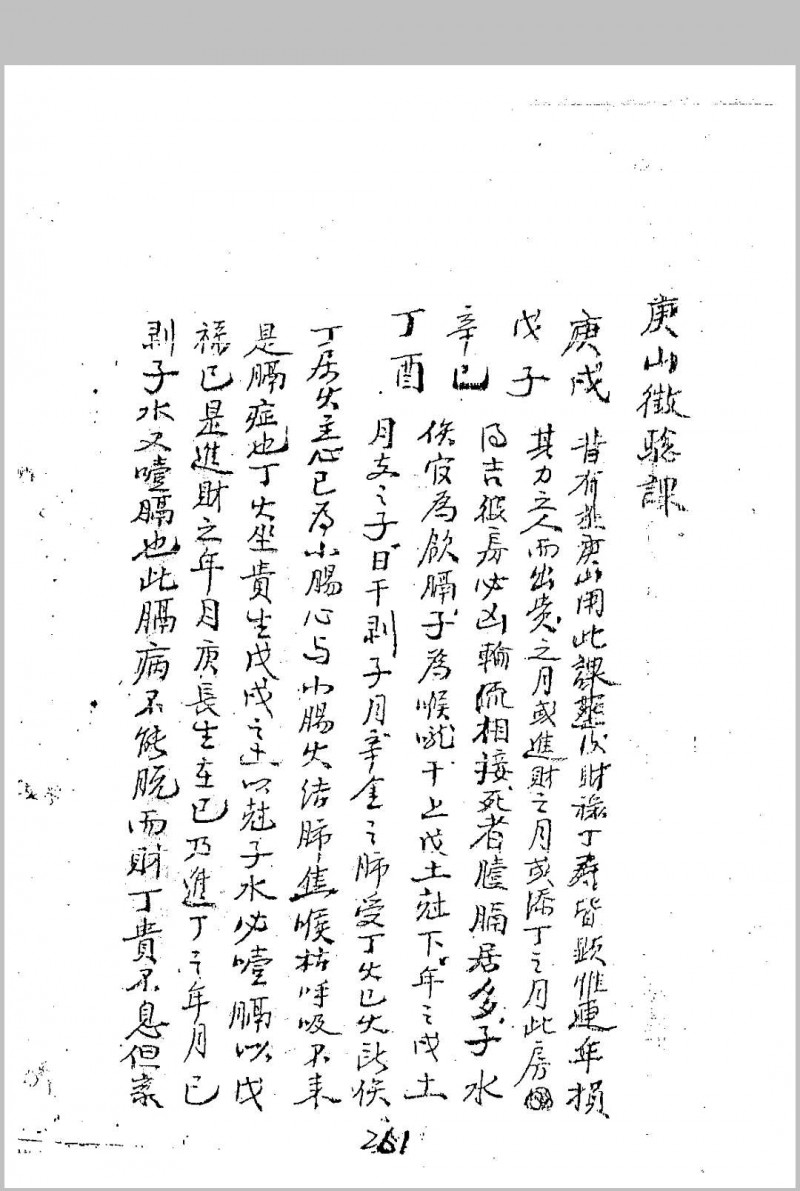 庚山徵驗課
庚戌 昔有葬庚山用此課葬后財祿丁壽皆顯惟連年損
戊子 其力之人而出貴之月或進財之月或添丁之月此房
辛巳 吉彼房必凶輪流相接死者膻膈居多子水
丁酉 侯官為飲膈子為喉嚨干上戊土尅下年之戌土
月支之子日干剥子月辛金之肺受丁火巳火
丁居火主心巳為小腸心与小腸火结肺焦喉枯呼吸不来
是膈症也丁火坐貴生戊戌之土以尅子水必噎膈以戊
祿巳是進財之年月庚長生在巳乃進丁之年月巳
剥子水又噎膈也此膈病不能脱而財丁貴不息但
261